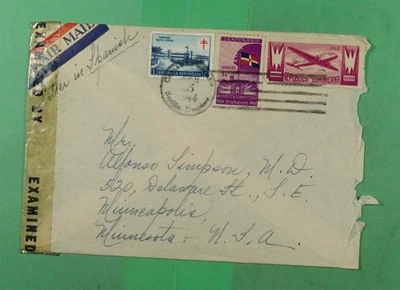 EXAMINED BY
AIR MAIL
Letter in Spanish
REPUBLICA DOMINICANA
CENTENARIO
CORREOS
10¢
REPUBLICA DOMINICANA
5
1944
Mr.
Alfonso Simpson, M. D.
520, Delaware St., S. E.
Minneapolis,
Minnesota - U. S. A.
EXAMINED